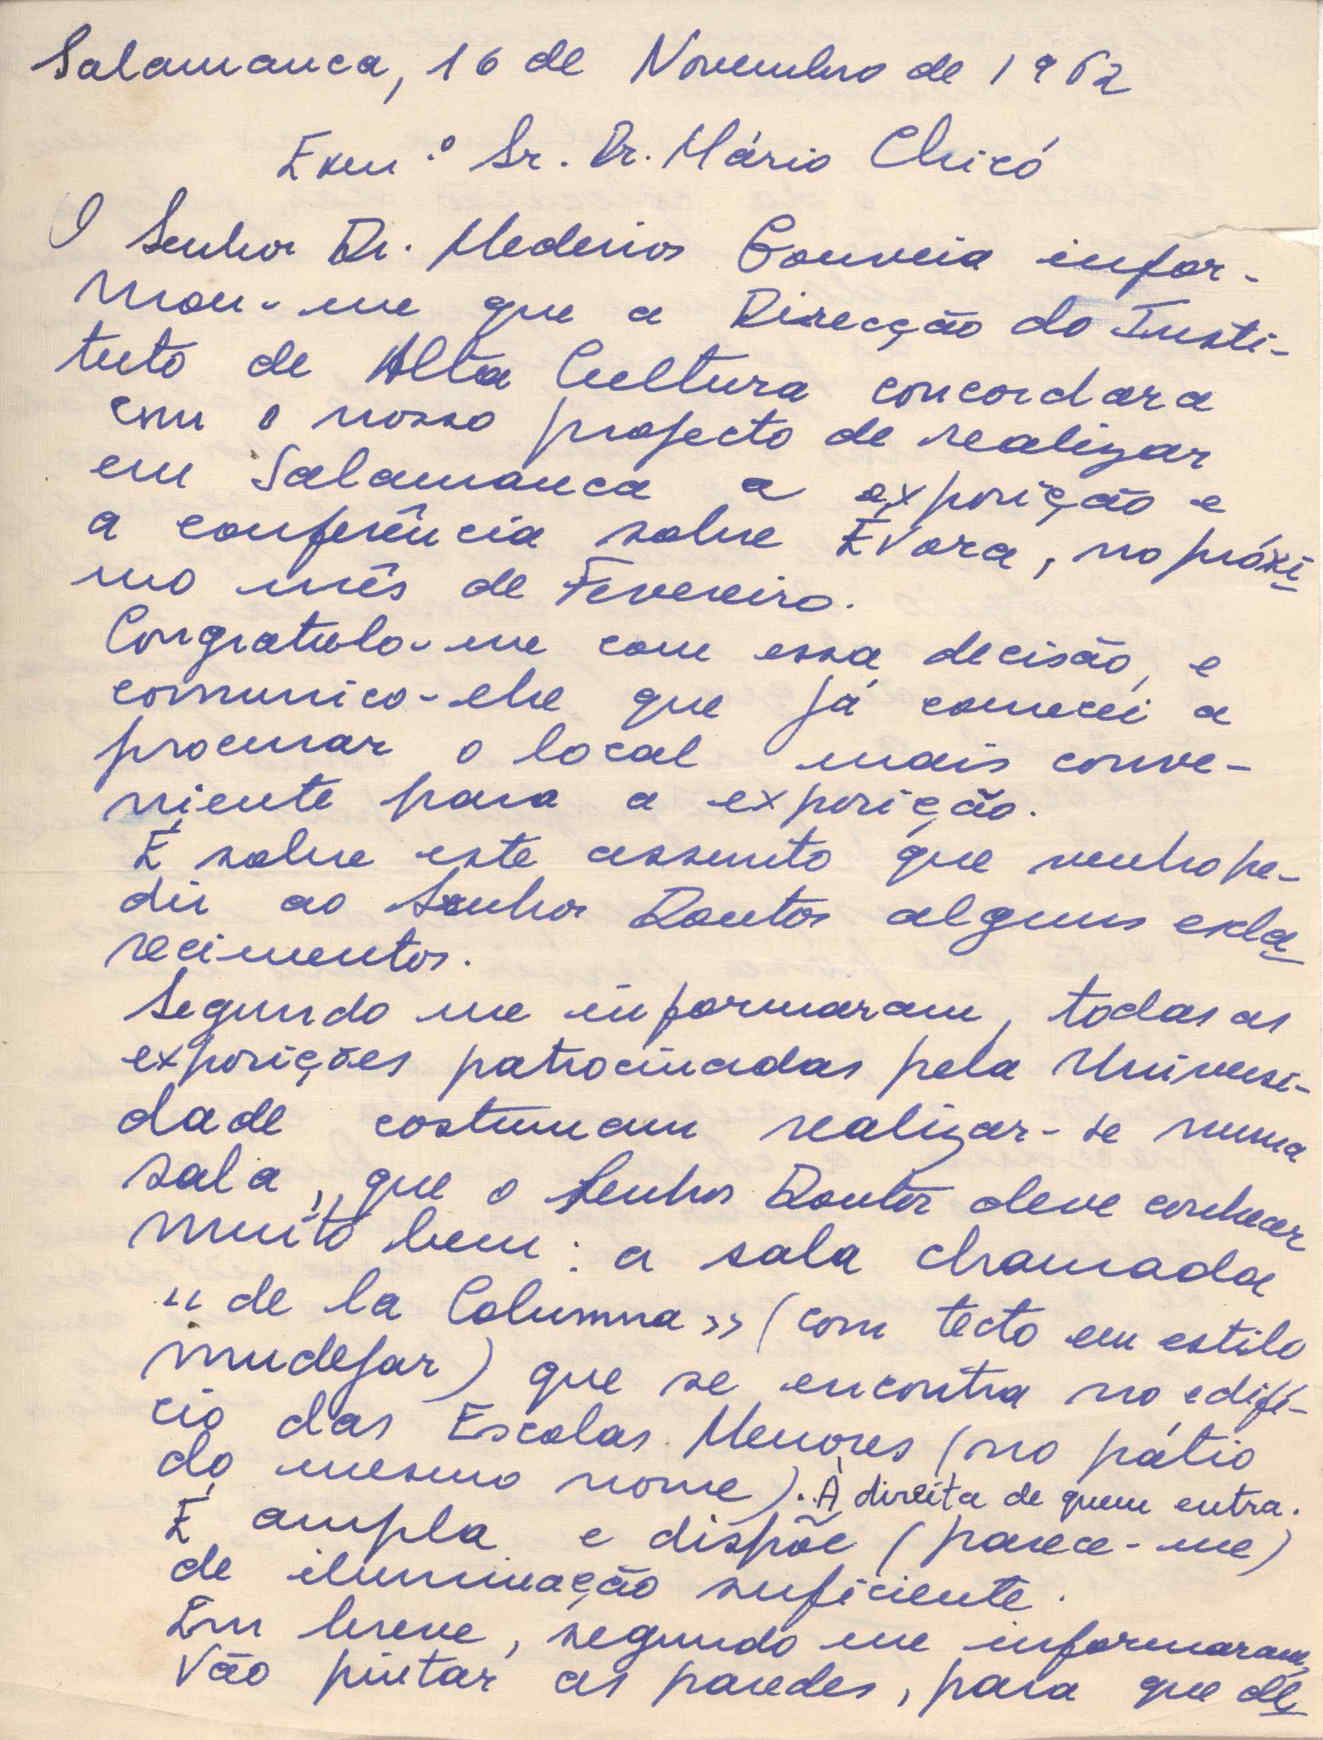 Salamanca, 16 de Novembro de 1962
Exm.º Sr. Dr. Mário Chicó
O Senhor Dr. Medeiros Gouveia infor-
mou-me que a Direcção do Insti-
tuto de Alta Cultura concordara
com o nosso projecto de realizar
em Salamanca a exposição e
a conferência sobre Évora, no próxi-
mo mês de Fevereiro.
Congratulo-me com essa decisão, e
comunico-lhe que já comecei a
procurar o local mais conve-
niente para a exposição.
É sobre este assunto que venho pe-
dir ao Senhor Doutor alguns escla-
recimentos.
Segundo me informaram, todas as
exposições patrocinadas pela Universi-
dade costumam realizar-se numa
sala, que o Senhor Doutor deve conhecer
muito bem: a sala chamada
"de la Columna» (com tecto em estilo
mudejar) que se encontra no edifí-
cio das Escolas Menores (no pátio
do mesmo nome). À direita de quem entra.
É ampla e dispõe (parece-me)
de iluminação suficiente.
Em breve, segundo me informaram,
vão pintar as paredes, para que de